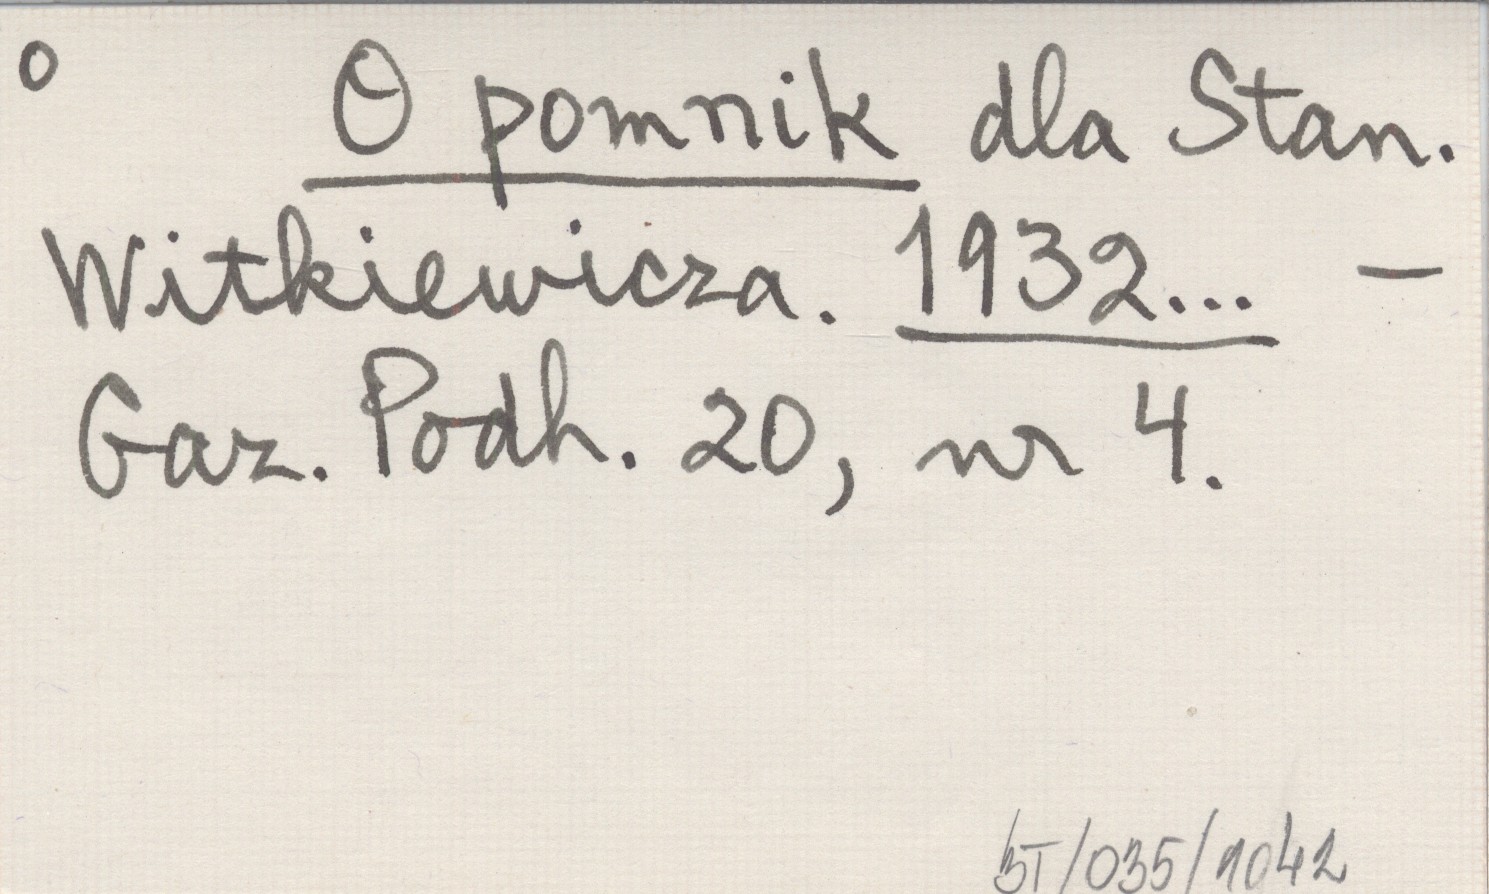 o O pomnik dla Stan.
Witkiewicza. 1932... —
Gaz. Podh. 20, nr 4.
BT/035/1042